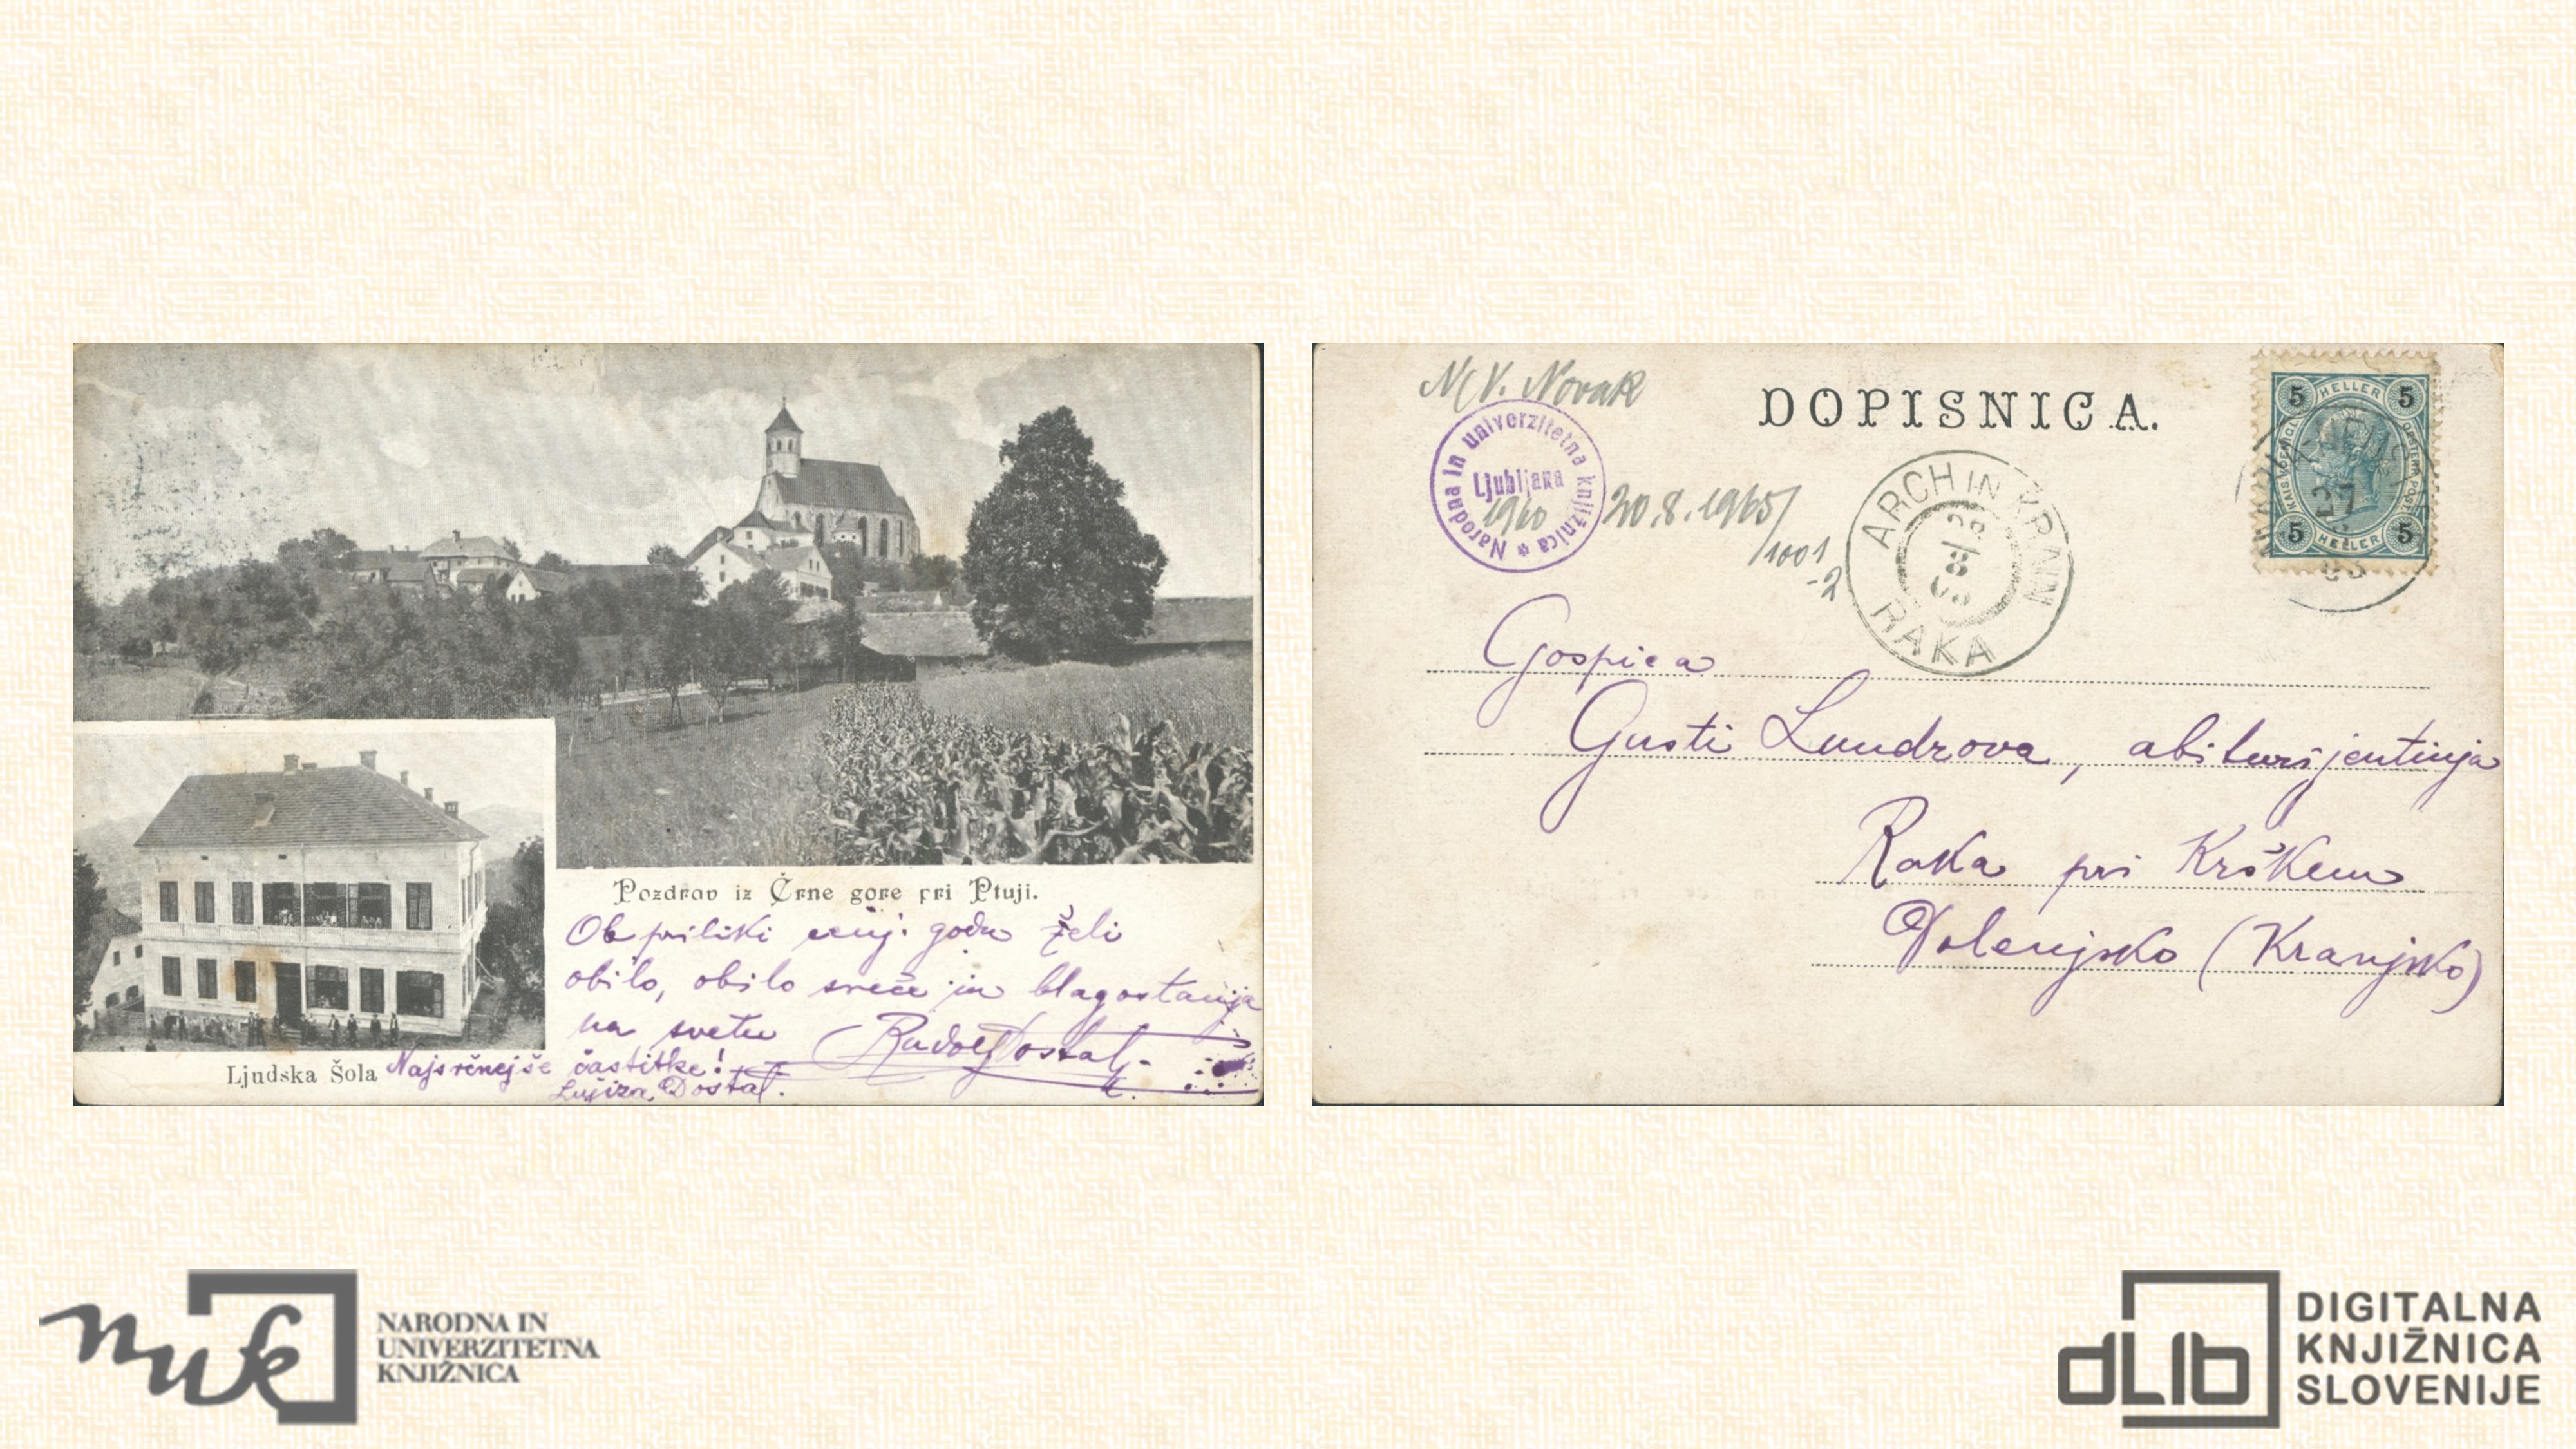 Pozdrav iz Črne gore pri Ptuji.
Ob priliki cenj. godu želi
obilo, obilo sreče in blagostanja
na svetu Rudolf Dostal
Ljudska Šola
Najsrčnejše častitke!
Lujiza Dostal.
M/V. Novak
DOPISNICA.
Narodna in univerzitetna knjižnica *
Ljubljana
1960
20.8.1965/
/1001
-2
ARCH IN KRAIN
8
RAKA
5 HELLER 5
5 HELLER 5
27
Gospica
Gusti , abiturijentinja
Raka pri Krškem
Dolenjsko (Kranjsko)
nuk
NARODNA IN
UNIVERZITETNA
KNJIŽNICA
dLib
DIGITALNA
KNJIŽNICA
SLOVENIJE